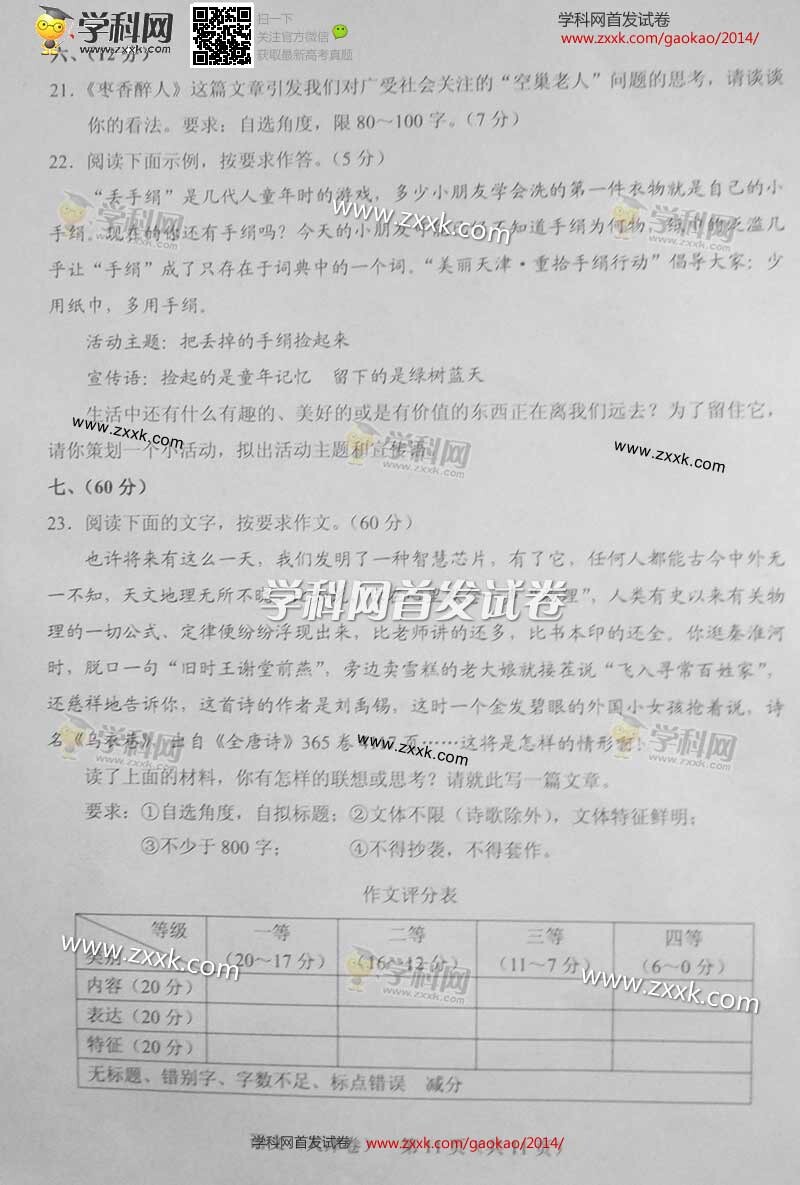 学科网
www.zxxk.com
扫一下
关注官方微信
获取最新高考真题
学科网首发试卷
www.zxxk.com/gaokao/2014/
六、(12分)
21.《枣香醉人》这篇文章引发我们对广受社会关注的“空巢老人”问题的思考，请谈谈
你的看法。要求：自选角度，限80～100字。(7分)
22．阅读下面示例，按要求作答。(5分)
“丢手绢”是几代人童年时的游戏，多少小朋友学会洗的第一件衣物就是自己的小
手绢。现在的你还有手绢吗？今天的小朋友不知道手绢为何物，泛滥几
乎让“手绢”成了只存在于词典中的一个词。“美丽天津·重拾手绢行动”倡导大家：少
用纸巾，多用手绢。
活动主题：把丢掉的手绢捡起来
宣传语：捡起的是童年记忆　留下的是绿树蓝天
生活中还有什么有趣的、美好的或是有价值的东西正在离我们远去？为了留住它，
请你策划一个小活动，拟出活动主题和宣传语。
七、(60分)
23．阅读下面的文字，按要求作文。(60分)
也许将来有这么一天，我们发明了一种智慧芯片，有了它，任何人都能古今中外无
一不知，天文地理无所不晓。理”，人类有史以来有关物
理的一切公式、定律便纷纷浮现出来，比老师讲的还多，比书本印的还全。你逛秦淮河
时，脱口一句“旧时王谢堂前燕”，旁边卖雪糕的老大娘就接茬说“飞入寻常百姓家”，
还慈祥地告诉你，这首诗的作者是刘禹锡，这时一个金发碧眼的外国小女孩抢着说，诗
名《乌衣巷》，出自《全唐诗》365卷17页……这将是怎样的情形啊！
读了上面的材料，你有怎样的联想或思考？请就此写一篇文章。
要求：①自选角度，自拟标题；②文体不限（诗歌除外），文体特征鲜明；
③不少于800字；　④不得抄袭，不得套作。
作文评分表
等级 一等 二等 三等 四等
类别 (20～17分) (16～12分) (11～7分) (6～0分)
内容(20分)
表达(20分)
特征(20分)
无标题、错别字、字数不足、标点错误　减分
学科网首发试卷
www.zxxk.com/gaokao/2014/
第11页
学科网
www.zxxk.com
学科网
www.zxxk.com
学科网
www.zxxk.com
学科网首发试卷
学科网
www.zxxk.com
学科网
www.zxxk.com
学科网
www.zxxk.com